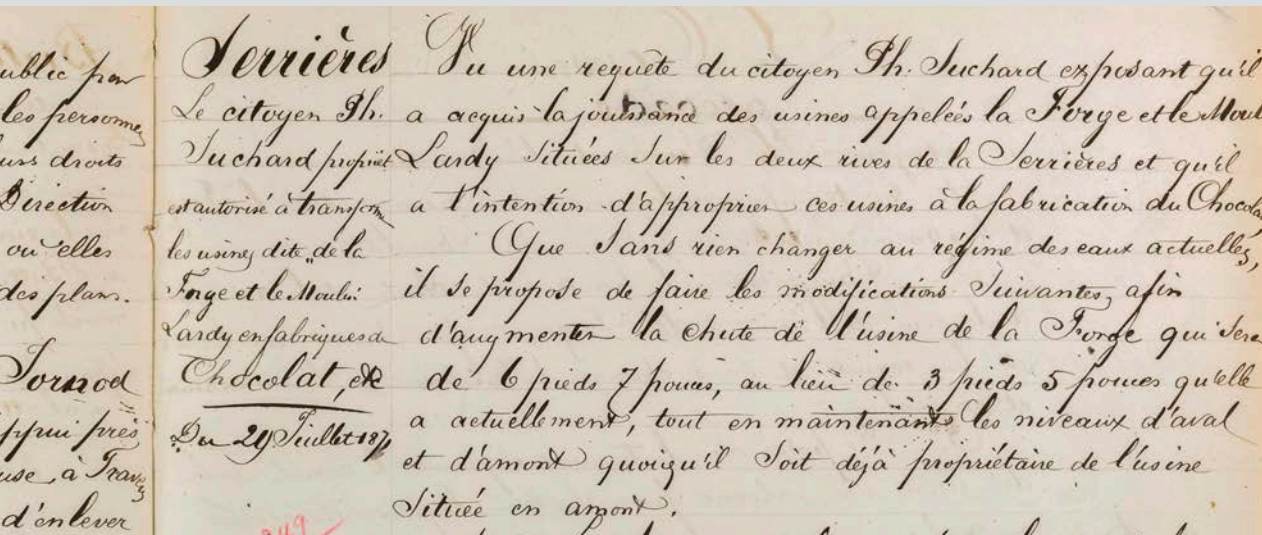 ublic pour
les personnes
urs droits
Direction
où elles
des plans.
Jornod
ppui près
use, à Travers
d'enlever
Serrières
Le citoyen Ph.
Suchard propriét
est autorisé à transforme
les usines dite „de la
Forge et le Moulin
Lardy en fabriques de
Chocolat, etc
Du 29 Juillet 187
249
Vu une requête du citoyen Ph. Suchard exposant qu'il
a acquis la jouissance des usines appelées la Forge et le Moul
Lardy situées sur les deux rives de la Serrières et qu'il
a l'intention d'approprier ces usines à la fabrication du Chocola
Que sans rien changer au régime des eaux actuelles,
il se propose de faire les modifications suivantes, afin
d'augmenter la chute de l'usine de la Forge qui sera
de 6 pieds 7 pouces, au lieu de 3 pieds 5 pouces qu'elle
a actuellement, tout en maintenant les niveaux d'aval
et d'amont quoiqu'il soit déjà propriétaire de l'usine
située en amont.